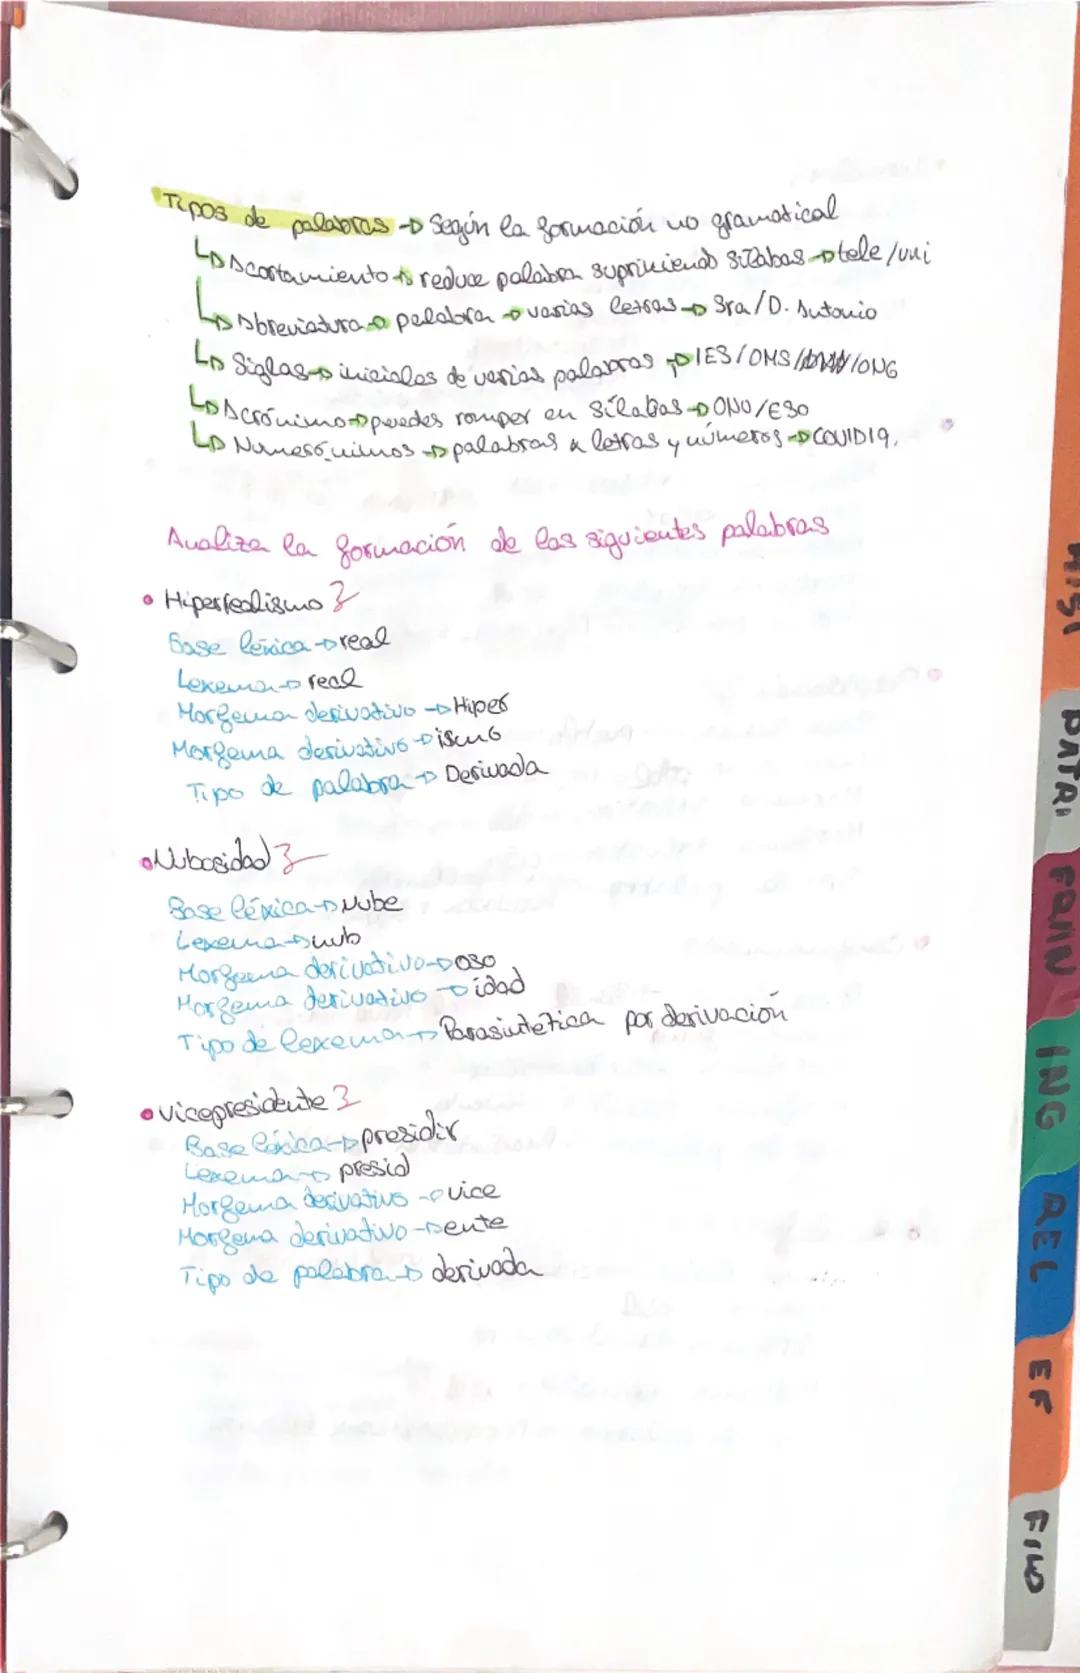 Tipos de palabras → Según la formación no gramatical
↳ Acortamiento → reduce palabra suprimiendo sílabas → tele/uni
↳ Abreviatura → palabra → varias letras → Sra/D. Antonio
↳ Siglas → iniciales de varias palabras → IES/OMS/ONG
↳ Acrónimo → puedes romper en sílabas → ONU/ESO
↳ Numerónimos → palabras letras y números → COVID19.
Analiza la formación de las siguientes palabras
• Hiperrealismo
Base léxica → real
Lexema → real
Morfema derivativo → Hiper
Morfema derivativo → ismo
Tipo de palabra → Derivada
• Nubosidad
Base léxica → Nube
Lexema → nub
Morfema derivativo → oso
Morfema derivativo → idad
Tipo de lexema → Parasintética por derivación
• vicepresidente
Base léxica → presidir
Lexema → presid
Morfema derivativo → vice
Morfema derivativo → ente
Tipo de palabra → derivada
HIST
PATRI
FRAN
ING
REL
EF